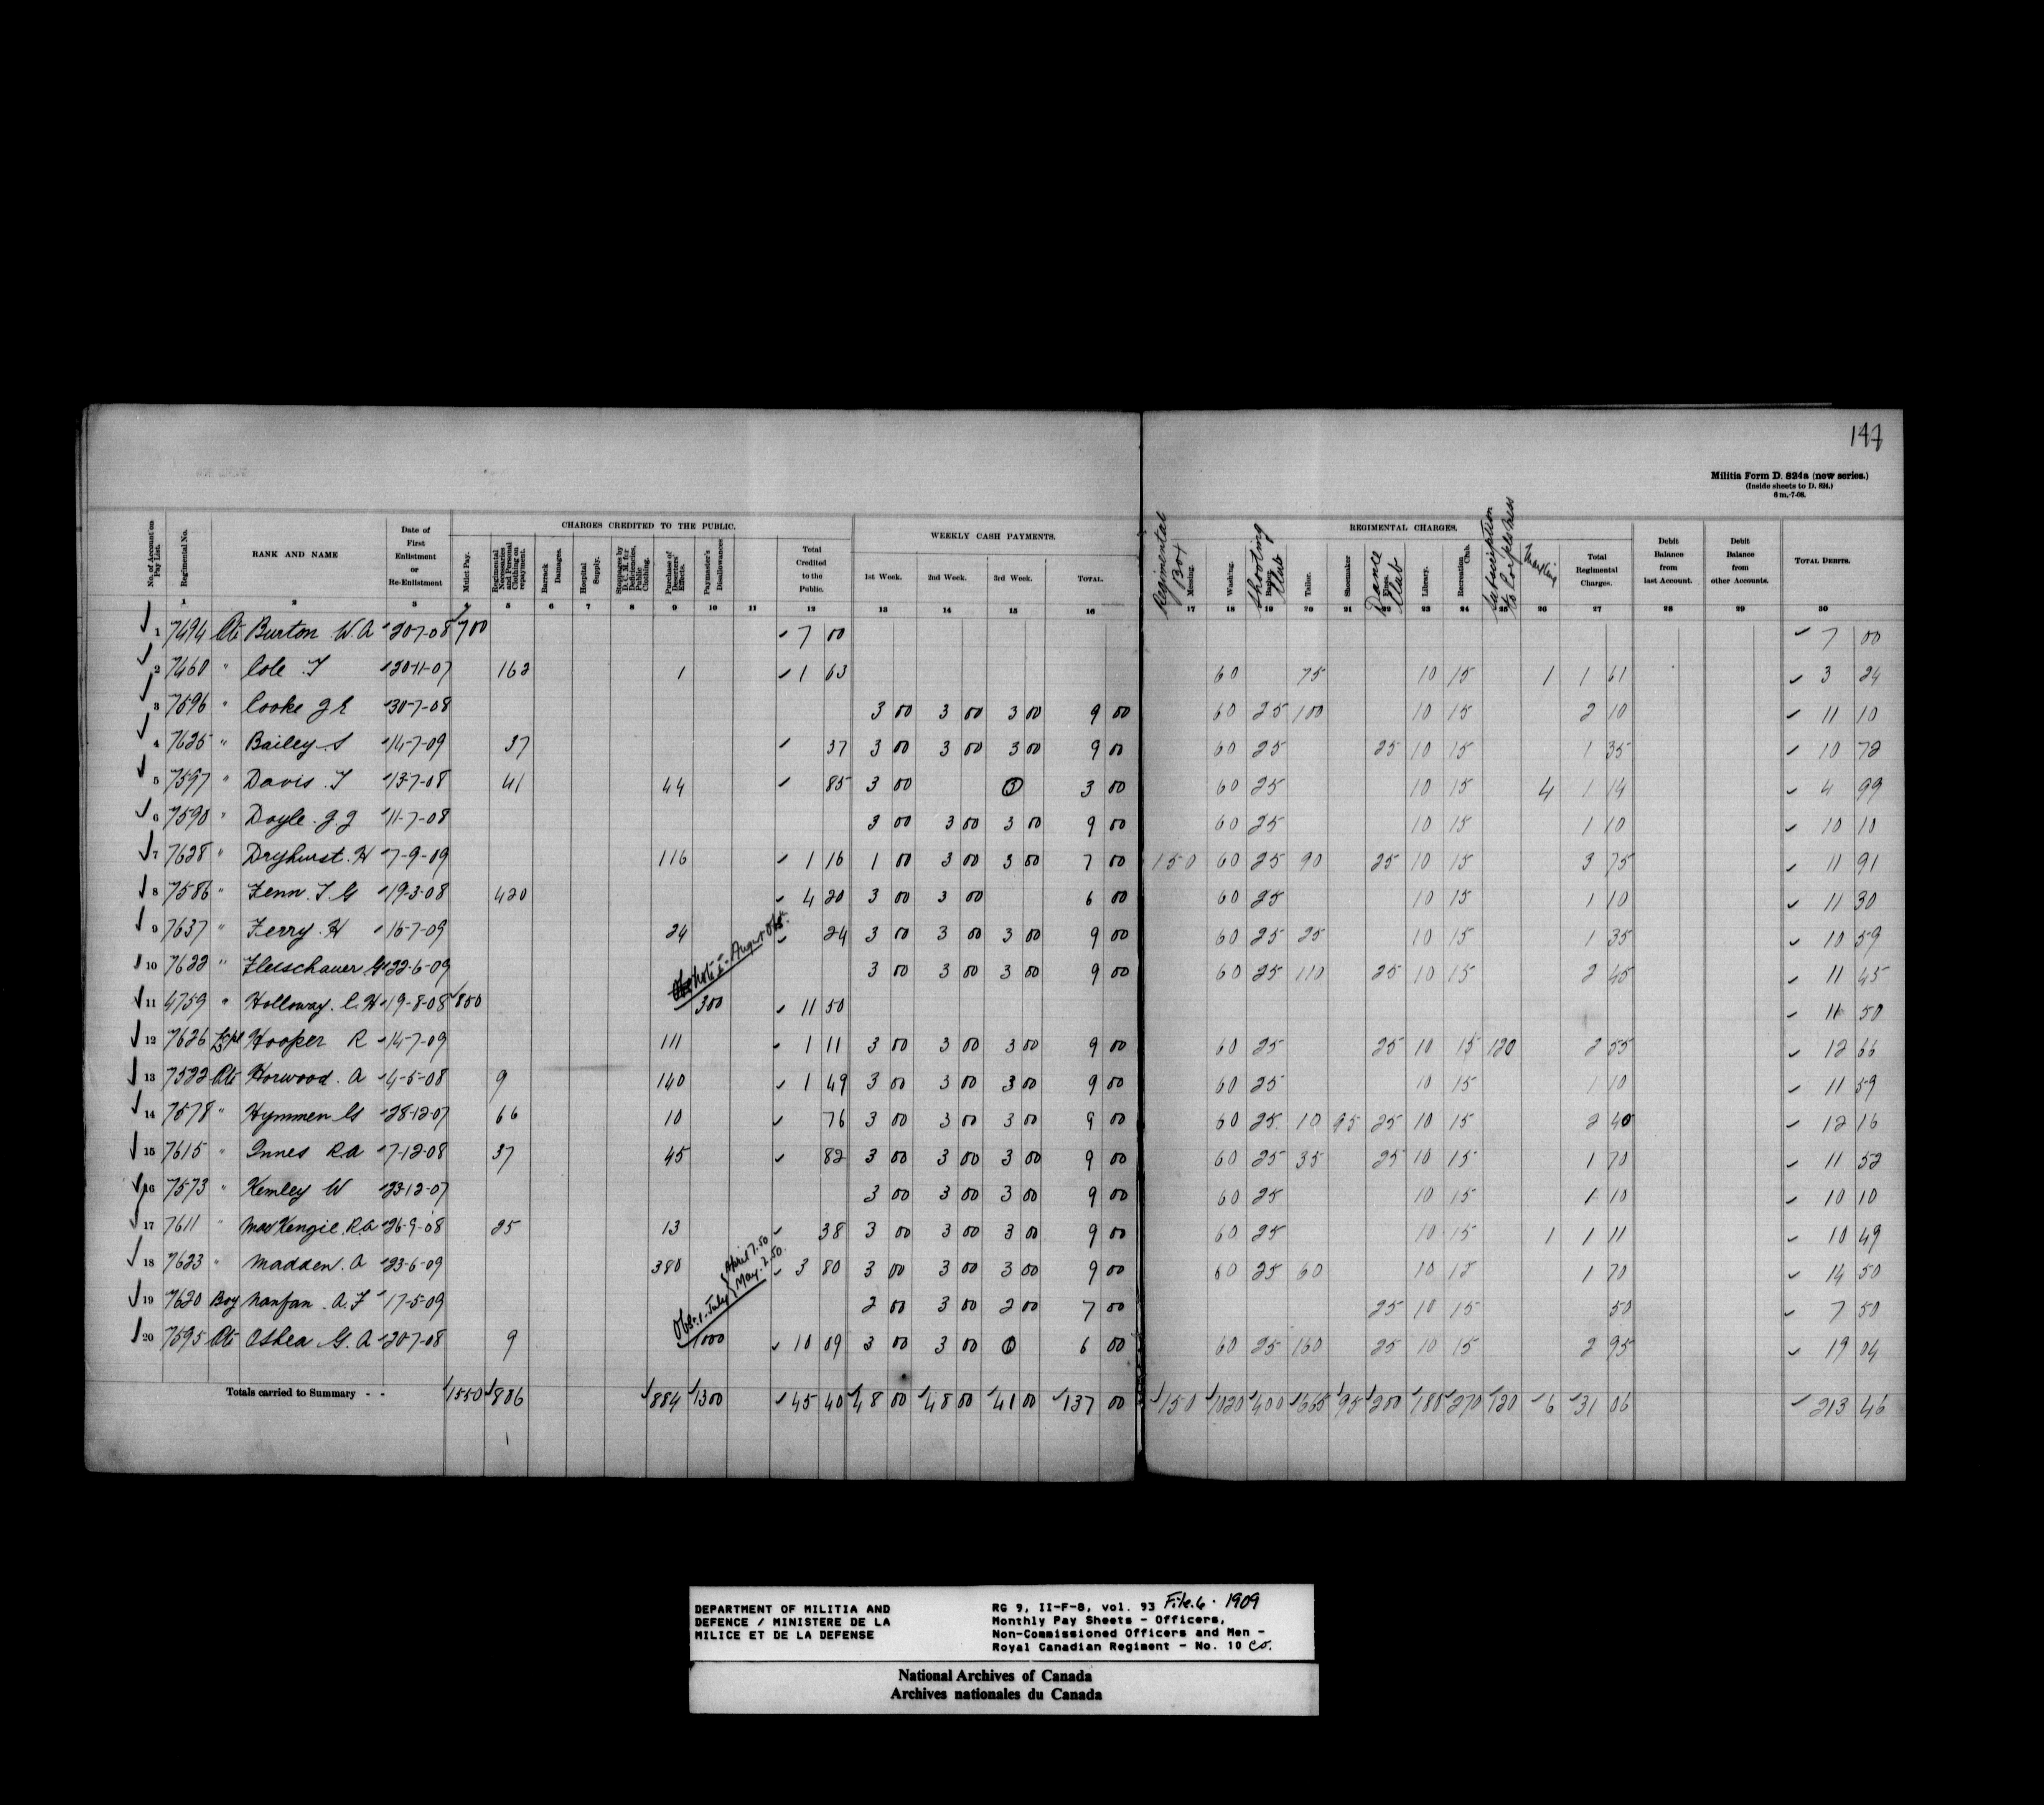 147
Militia Form D. 824a (new series.)
(Inside sheets to D. 824.)
6 m.-7-08.
No. of Account on Pay List. Regimental No. RANK AND NAME Date of First Enlistment or Re-Enlistment CHARGES CREDITED TO THE PUBLIC. WEEKLY CASH PAYMENTS. REGIMENTAL CHARGES. Debit Balance from last Account. Debit Balance from other Accounts. TOTAL DEBITS.
Mulct Pay. Regimental Necessaries and Personal Clothing on repayment. Barrack Damages. Hospital Supply. Stoppages by D. C. M. for Deficiencies, Public Clothing. Purchase of Deserters' Effects. Paymaster's Disallowances Total Credited to the Public. 1st Week. 2nd Week. 3rd Week. TOTAL. Regimental Box Messing. Washing. Shooting Club Tailor. Shoemaker Dance Club Library. Recreation Club. Subscription to Corpls Mess Total Regimental Charges.
1 2 3 4 5 6 7 8 9 10 11 12 13 14 15 16 17 18 19 20 21 22 23 24 25 26 27 28 29 30
1 7494 Pte Burton W. A 20-7-08 700 7 00 7 00
2 7460 " Cole T 20-11-07 162 1 1 63 60 75 10 15 1 1 61 3 24
3 7596 " Cooke J E 30-7-08 3 00 3 00 3 00 9 00 60 25 100 10 15 2 10 11 10
4 7625 " Bailey S 14-7-09 37 37 3 00 3 00 3 00 9 00 60 25 25 10 15 1 35 10 72
5 7597 " Davis T 13-7-08 41 44 85 3 00 3 3 00 60 25 10 15 4 1 14 4 99
6 7590 " Doyle J. J 11-7-08 3 00 3 00 3 00 9 00 60 25 10 15 1 10 10 10
7 7628 " Dryhurst H 7-9-09 116 1 16 1 00 3 00 3 00 7 00 150 60 25 90 25 10 15 3 75 11 91
8 7586 " Fenn T. G 19-3-08 420 4 20 3 00 3 00 6 00 60 25 10 15 1 10 11 30
9 7637 " Ferry H 16-7-09 24 24 3 00 3 00 3 00 9 00 60 25 25 10 15 1 35 10 59
10 7622 " Fleischauer G 22-6-09 3 00 3 00 3 00 9 00 60 25 110 25 10 15 2 45 11 45
August Obsn.
11 4759 " Holloway C. H 19-8-08 850 300 11 50 11 50
12 7626 Hooper R 14-7-09 111 1 11 3 00 3 00 3 00 9 00 60 25 25 10 15 120 2 55 12 66
13 7522 Pte Horwood A 4-5-08 9 140 1 49 3 00 3 00 3 00 9 00 60 25 10 15 1 10 11 59
14 7578 " Hymmen G 28-12-07 66 10 76 3 00 3 00 3 00 9 00 60 25 10 95 25 10 15 2 40 12 16
15 7615 " Innes R A 7-12-08 37 45 82 3 00 3 00 3 00 9 00 60 25 35 25 10 15 1 70 11 52
16 7573 " Kemley W 23-12-07 3 00 3 00 3 00 9 00 60 25 10 15 1 10 10 10
17 7611 " MacKenzie R. A 26-9-08 25 13 38 3 00 3 00 3 00 9 00 60 25 10 15 1 1 11 10 49
18 7623 " Madden A 23-6-09 380 3 80 3 00 3 00 3 00 9 00 60 25 60 10 15 1 70 14 50
19 7620 Boy Nanfan A. F 17-5-09 2 00 3 00 2 00 7 00 25 10 15 50 7 50
Obsn. July April 7.50 May. 2.50.
20 7595 Pte OShea G. A 20-7-08 9 1000 10 09 3 00 3 00 6 00 60 25 160 25 10 15 2 95 19 04
Totals carried to Summary - - 1550 806 884 1300 45 40 48 00 48 00 41 00 137 00 150 1020 400 665 95 200 180 270 120 6 31 06 213 46
DEPARTMENT OF MILITIA AND
DEFENCE / MINISTERE DE LA
MILICE ET DE LA DEFENSE
RG 9, II-F-8, vol. 93 File.6. 1909
Monthly Pay Sheets - Officers,
Non-Commissioned Officers and Men -
Royal Canadian Regiment - No. 10 Co.
National Archives of Canada
Archives nationales du Canada